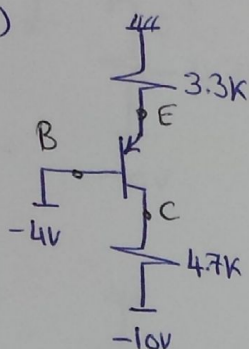 )
3.3K
E
B
-4V
C
4.7K
-10V